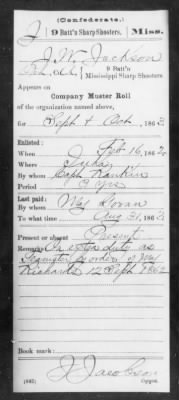 (Confederate.)
J | 9 Batt'n Sharp Shooters. | Miss.
J. W. Jackson
Co. | 9 Batt'n
Mississippi Sharp Shooters.
Appears on
Company Muster Roll
of the organization named above,
for Sept & Oct, 1862
Enlisted:
When Feb 16, 1862
Where Iuka
By whom Capt Rankin
Period 3 yrs
Last paid:
By whom Maj
To what time Aug 31, 1862
Present or absent Present
Remarks: On extra duty as
Teamster by order of Maj
Richards 12 Sept 1862
Book mark:
Copyist.